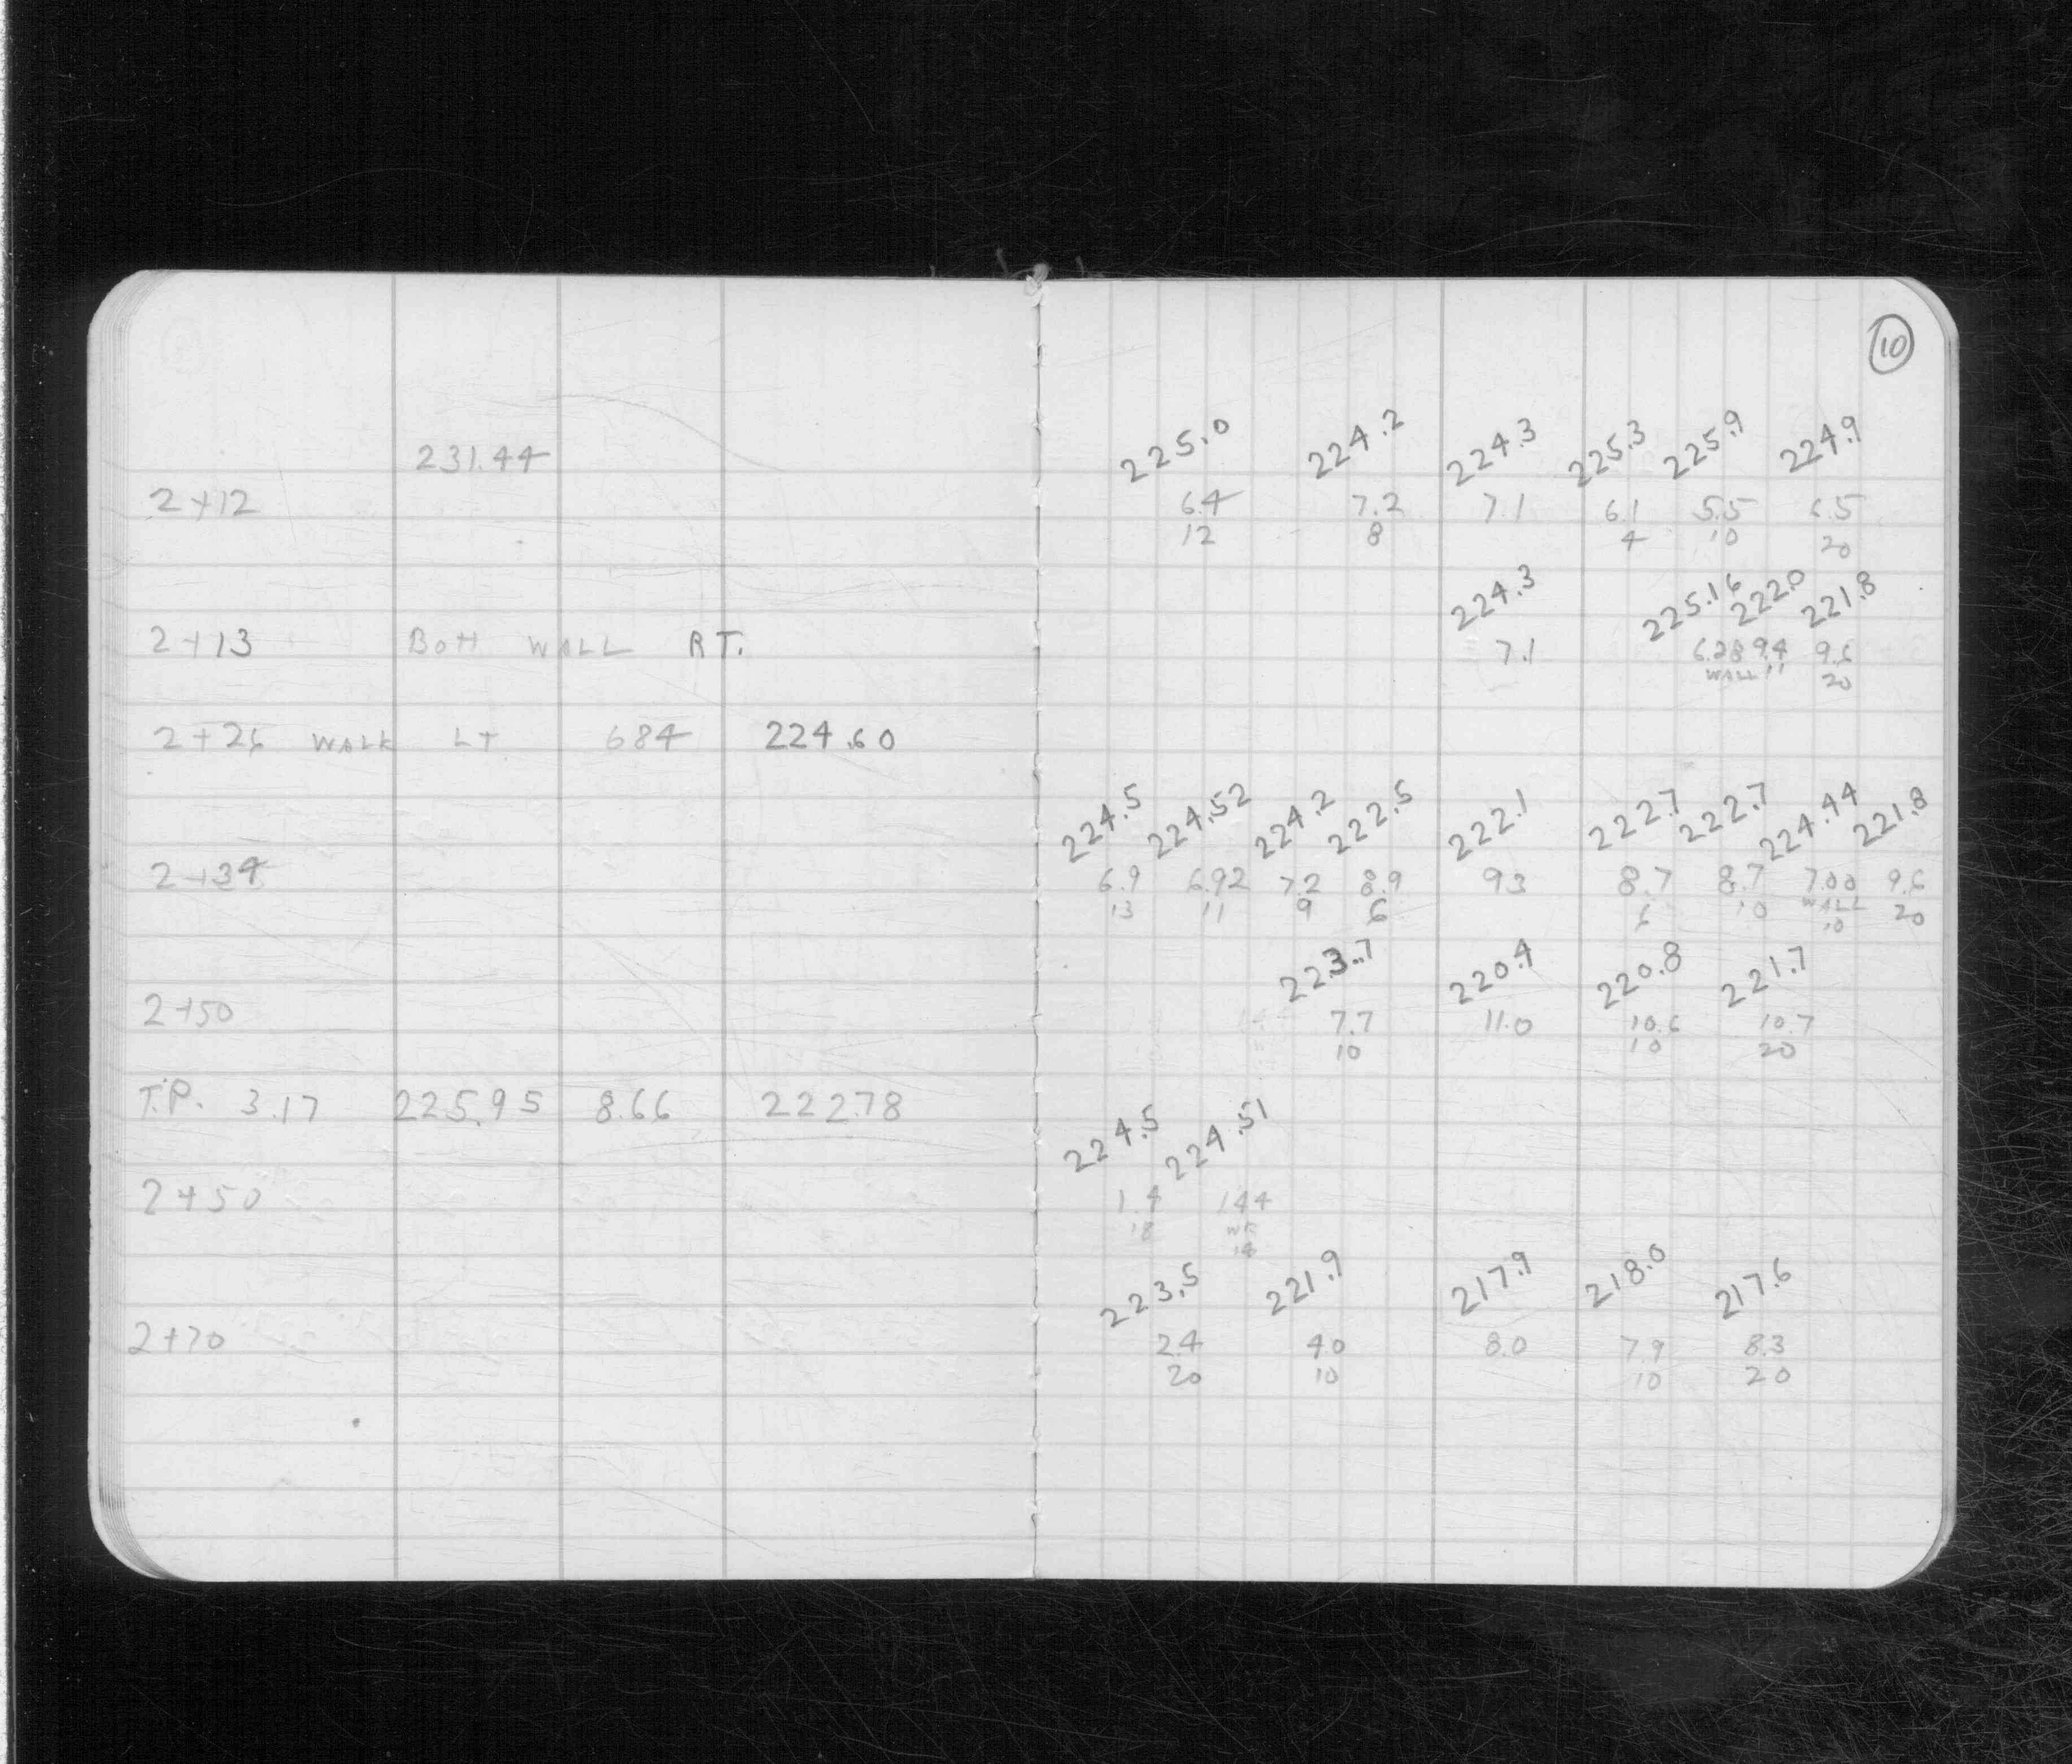 10
231.44
225.0 224.2 224.3 225.3 225.9 224.9
2+12 6.4 7.2 7.1 6.1 5.5 6.5
12 8 4 10 20
224.3 225.16 222.0 221.8
2+13 BOTT WALL RT. 7.1 6.28 9.4 9.6
WALL 11 20
2+26 WALK LT 684 224.60
224.5 224.52 224.2 222.5 222.1 222.7 222.7 224.44 221.8
2+34 6.9 6.92 7.2 8.9 93 8.7 8.7 7.00 9.6
13 11 9 6 6 10 WALL 20
10
223.7 220.4 220.8 221.7
2+50 7.7 11.0 10.6 10.7
10 10 20
T.P. 3.17 225.95 8.66 222.78
224.5 224.51
2+50 1.4 144
18 14
223.5 221.9 217.9 218.0 217.6
2+70 24 40 8.0 7.9 8.3
20 10 10 20